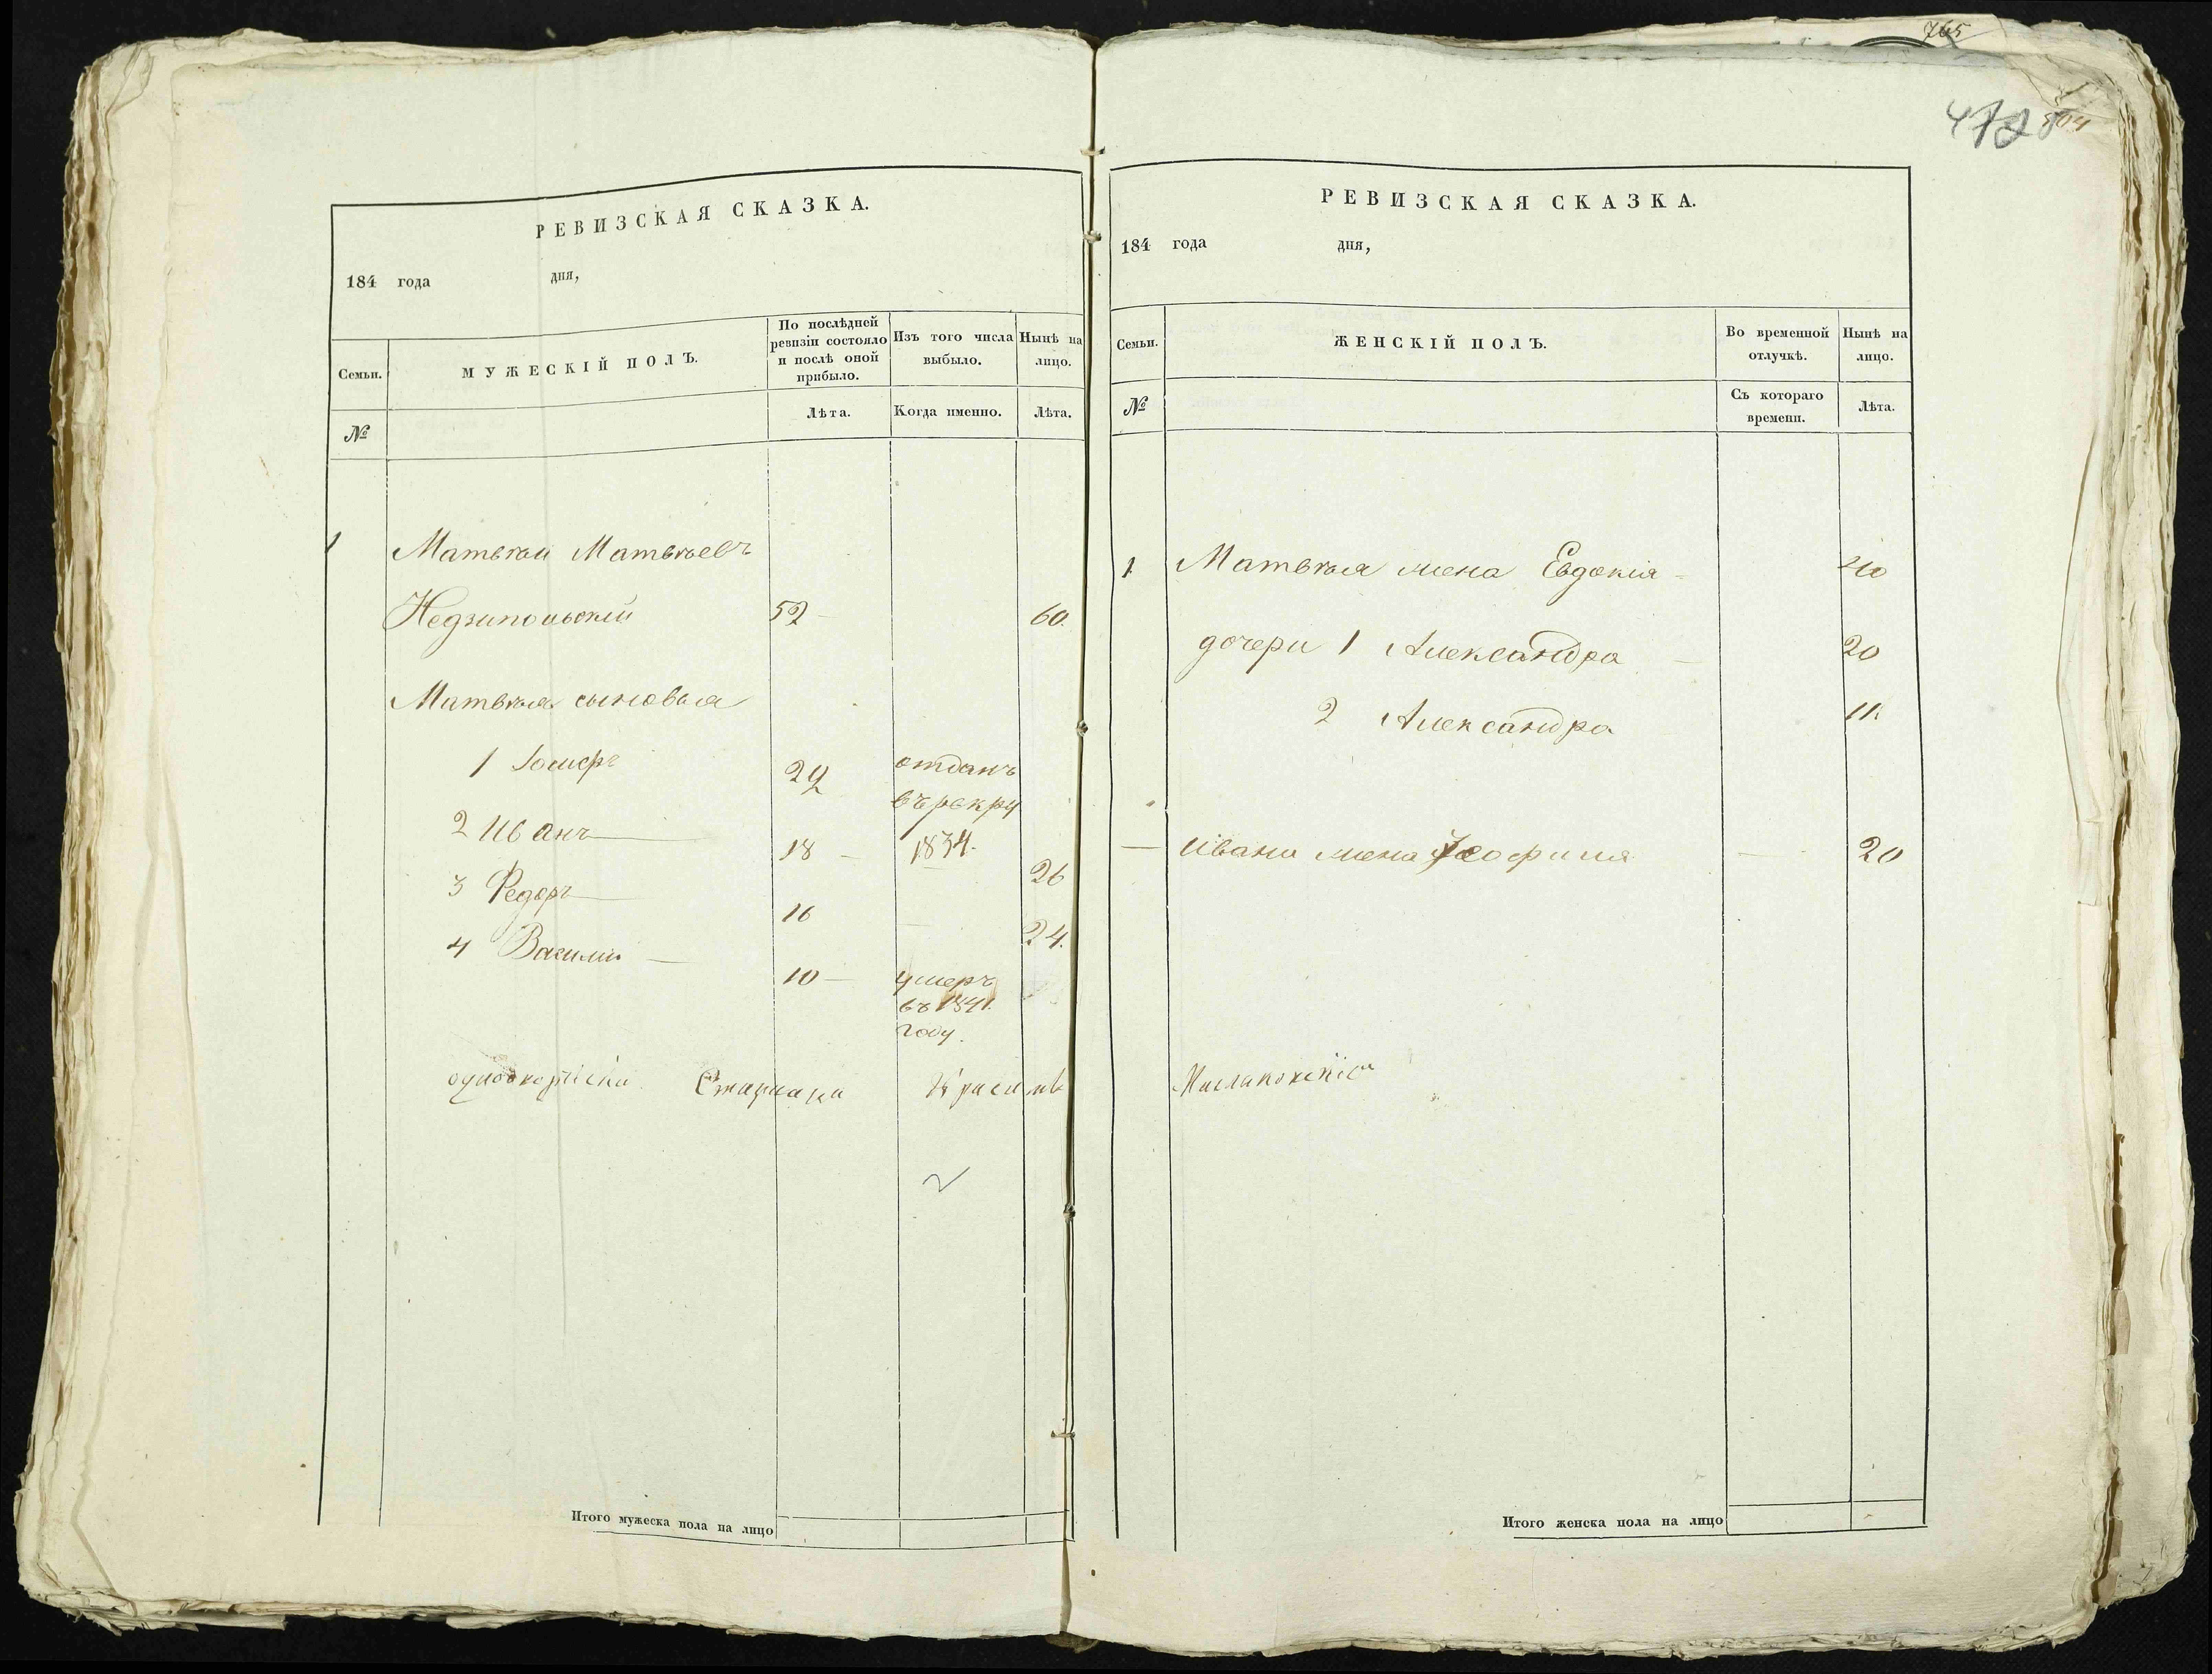 765
472
804
РЕВИЗСКАЯ СКАЗКА.
184 года дня,
Семьи.
МУЖЕСКІЙ ПОЛЪ.
По послѣдней ревизіи состояло и послѣ оной прибыло.
Изъ того числа выбыло.
Нынѣ на лицо.
№
Лѣта.
Когда именно.
Лѣта.
1 Матвѣй Матвѣевъ
52 60.
Матвѣя сыновья
1 Іосифъ 29 отданъ
въ рекру
2 Иванъ 18 1834. 26
3 Федоръ 16 24.
4 Василій 10 умеръ
въ 1841.
году.
Итого мужеска пола на лицо
РЕВИЗСКАЯ СКАЗКА.
184 года дня,
Семьи.
ЖЕНСКІЙ ПОЛЪ.
Во временной отлучкѣ.
Нынѣ на лицо.
№
Съ котораго времени.
Лѣта.
1 Матвѣя жена Евдокія 40
дочери 1 Александра 20
2 Александра 11.
Ивана жена 20
Итого женска пола на лицо